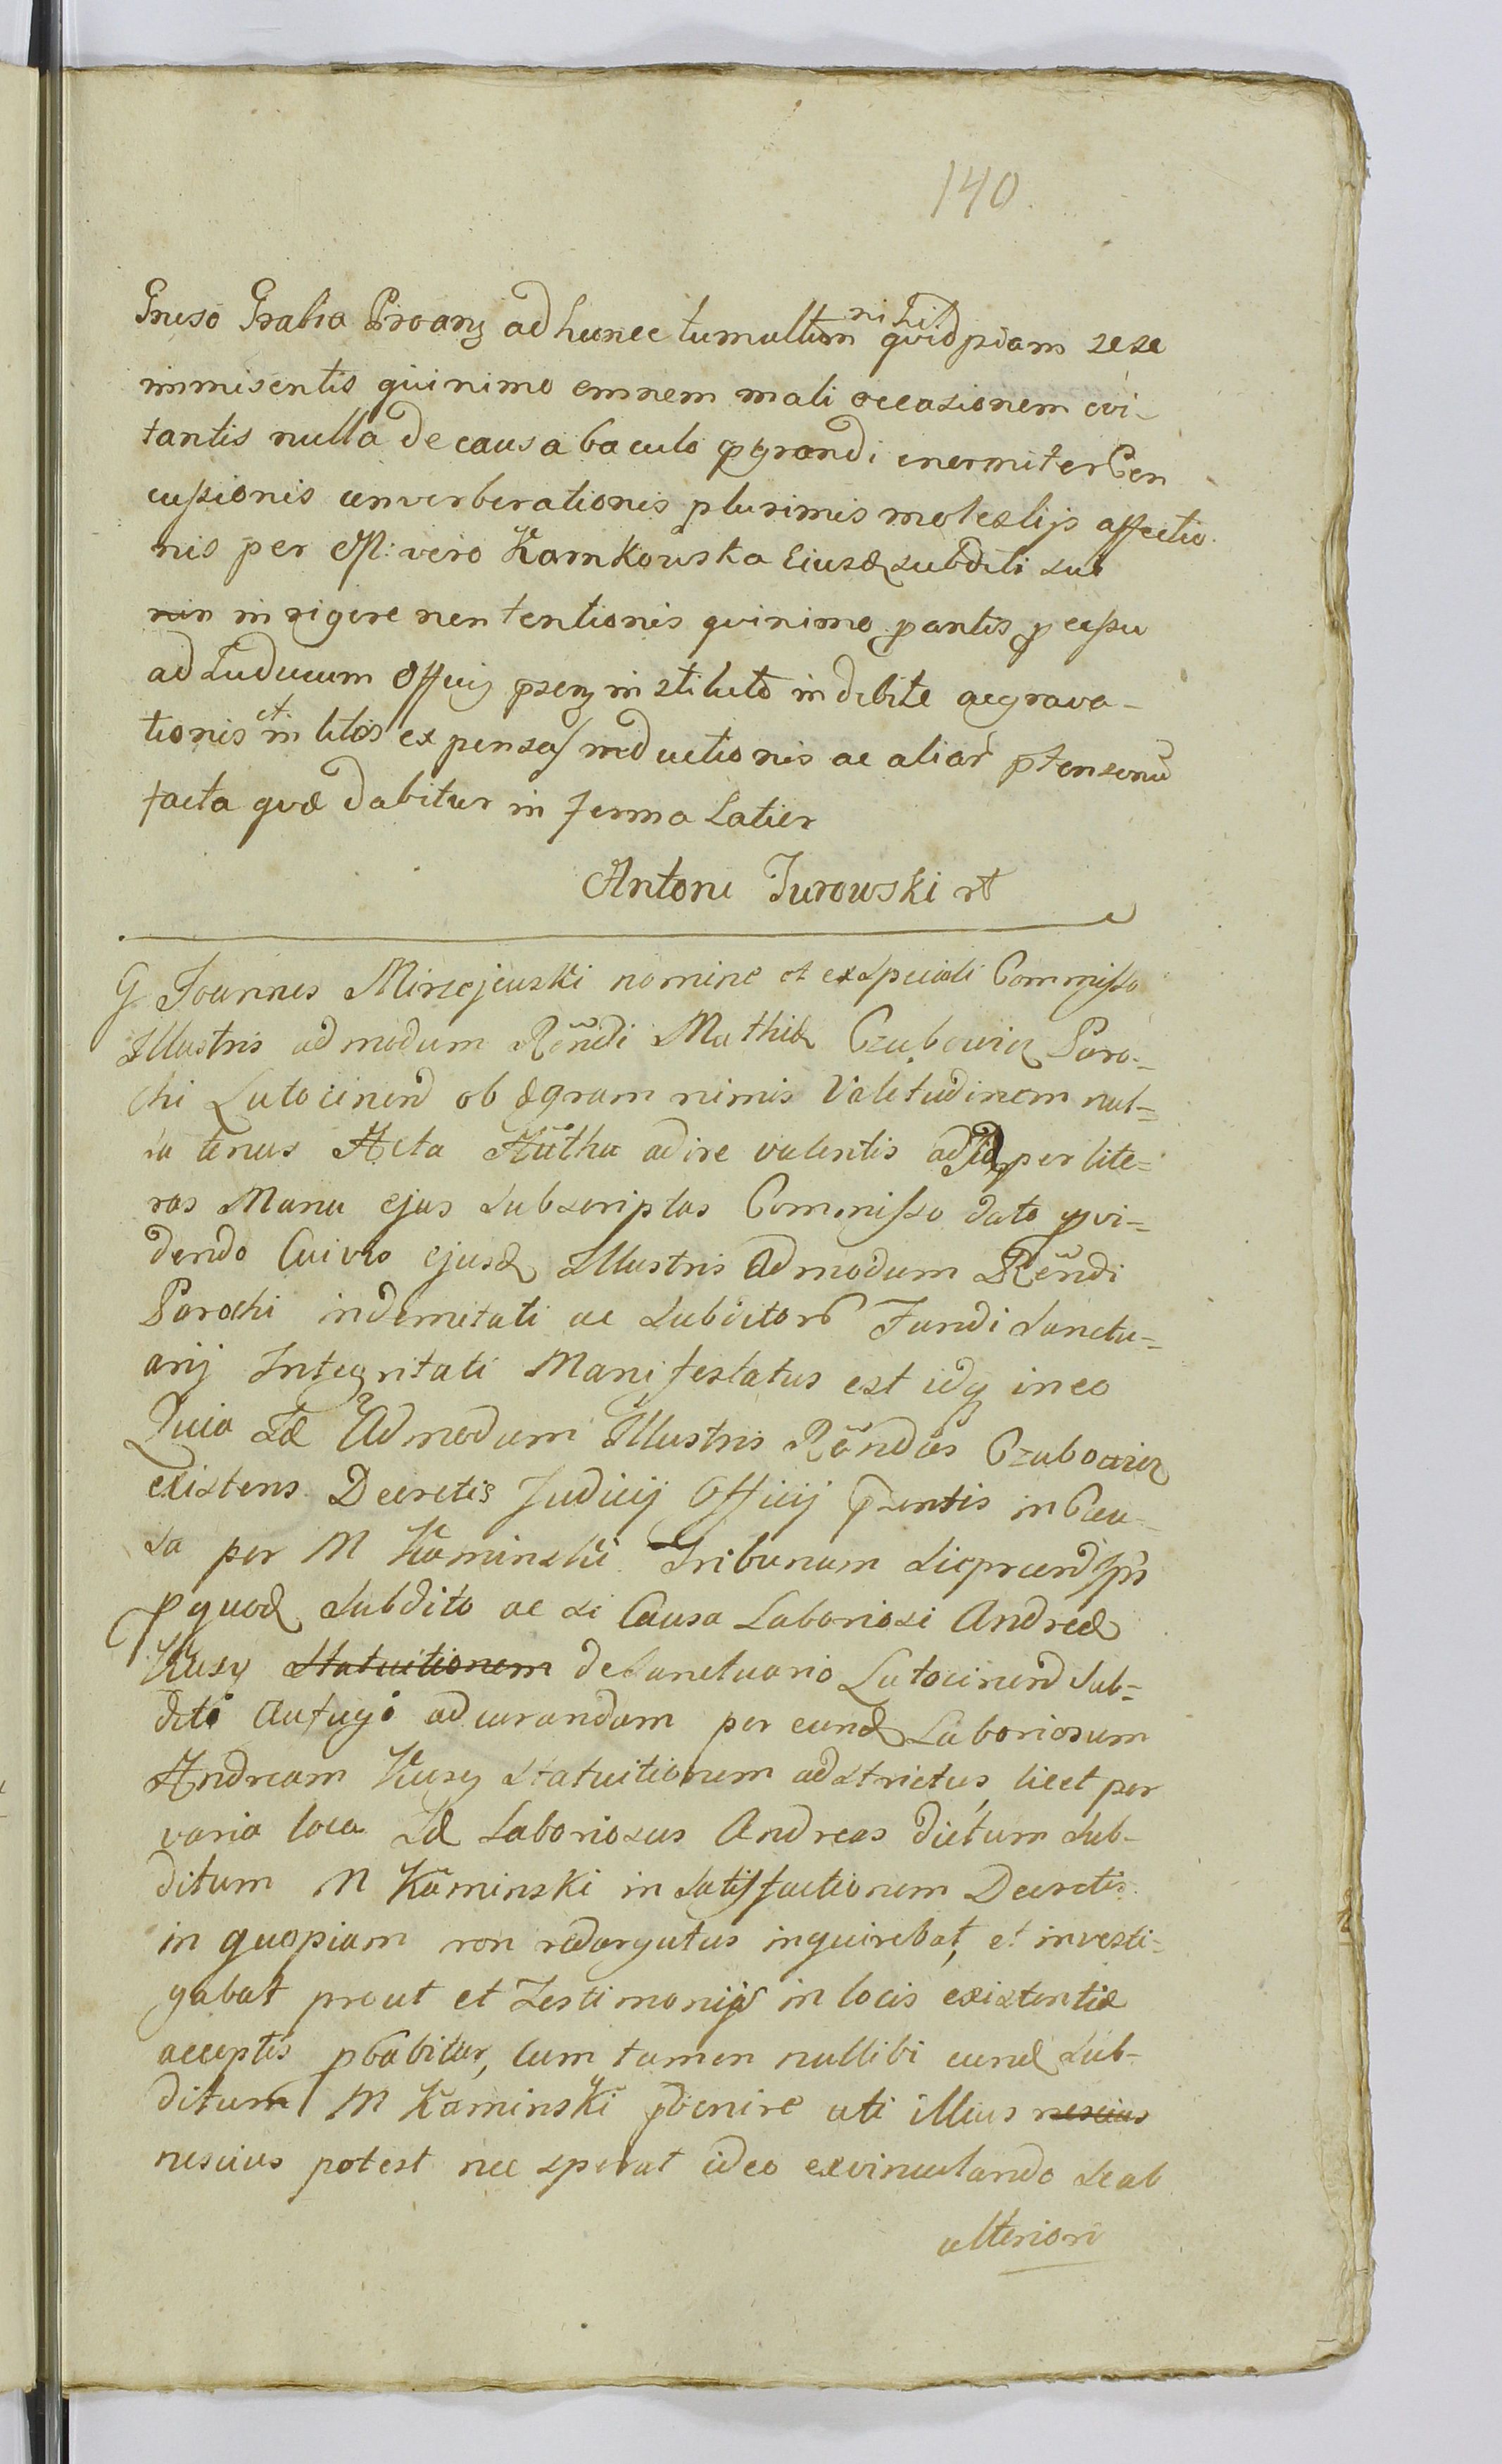 140.
Gnuso Gratia Proanz ad hunec tumultum nihil quidpiam sese
immiscentis quinimo omnem mali occasionem evi-
tantis nulla de causa baculo pgrandi enormiter Con
cussionis converberationis plurimis molestijs affectio
nis per M: vero Karnkowska Eiusd subditi sui
nin in rigore non tentionis quinimo
ad Judicium Officij pseng instituto indebite aggrava-
tionis et in litis expensas inductionis ac aliar ptensonu
facta quæ dabitur in forma Latier
Antoni Jurowski rt
G Joannes Mirzejewski nomine et ex speciali Commisso
Illustris admodum Rẽndi Mathiæ Czubowicz Paro-
chi Lutocinend ob ægram nimis Valetudinem nul-
la tenus Acta Aũtha adire valentis ad id per lite=
ras Manu ejus subscriptas Commisso dato pvi-
dendo Cuivis ejusd Illustris Admodum Rẽndi
Parochi indemitati ac subditorũ Fundi Sanctu=
arij Integritati Manifestatus est idq in eo
Quia Id Admodum Illustris Rẽndus Czubowicz
existens Decretis Judicij Officij pzentis in Cau-
sa per M Kaminski Tribunum
p quod Subdito ac si Causa Laboriosi Andreæ
Kusy Statuitionem de Sanctuario Lutocinend Sub=
diti Aufugi ad curandam per eund Laboriosum
Andream Kusy statuitionem adstrictus, licet per
varia loca Id Laboriosus Andreas dictum Sub-
ditum M Kaminski in Satisfactionem Decretis
in quopiam non redargutus inquirebat, et investi-
gabat prout et Testimonijs in locis existentiæ
acceptis pbabitur, Cum tamen nullibi eund Sub-
ditum M Kaminski pvenire uti illius nescius
nescius potest nec sperat ideo exvinculando se ab
ulteriori